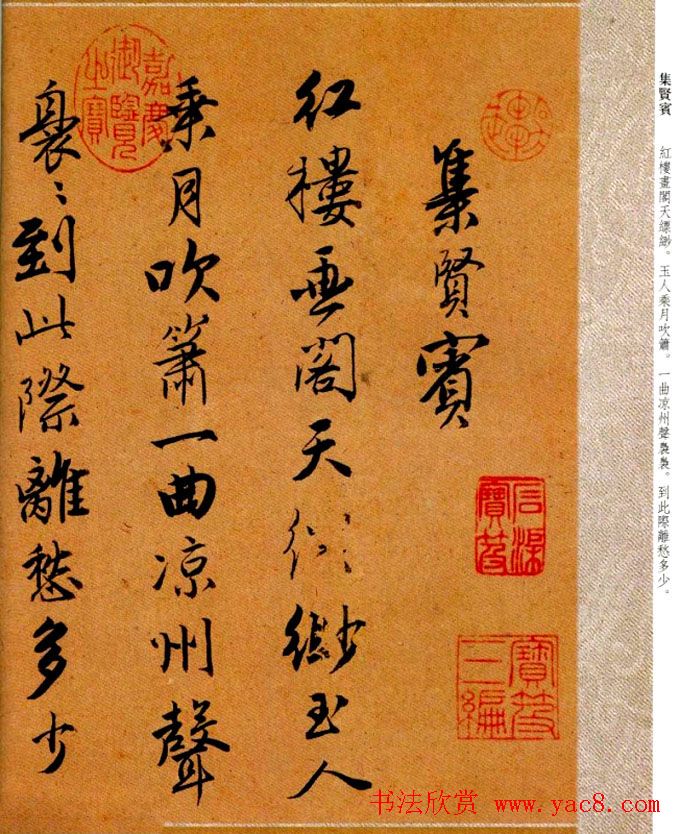 集賢賓　紅樓畫閣天縹緲。玉人乘月吹簫。一曲凉州聲裊裊。到此際離愁多少。
集賢賓
石渠寶笈
寶笈三編
紅樓畫閣天縹緲玉人
乘月吹簫一曲凉州聲
嘉慶御覽之寶
裊〻到此際離愁多少
书法欣赏 www.yac8.com